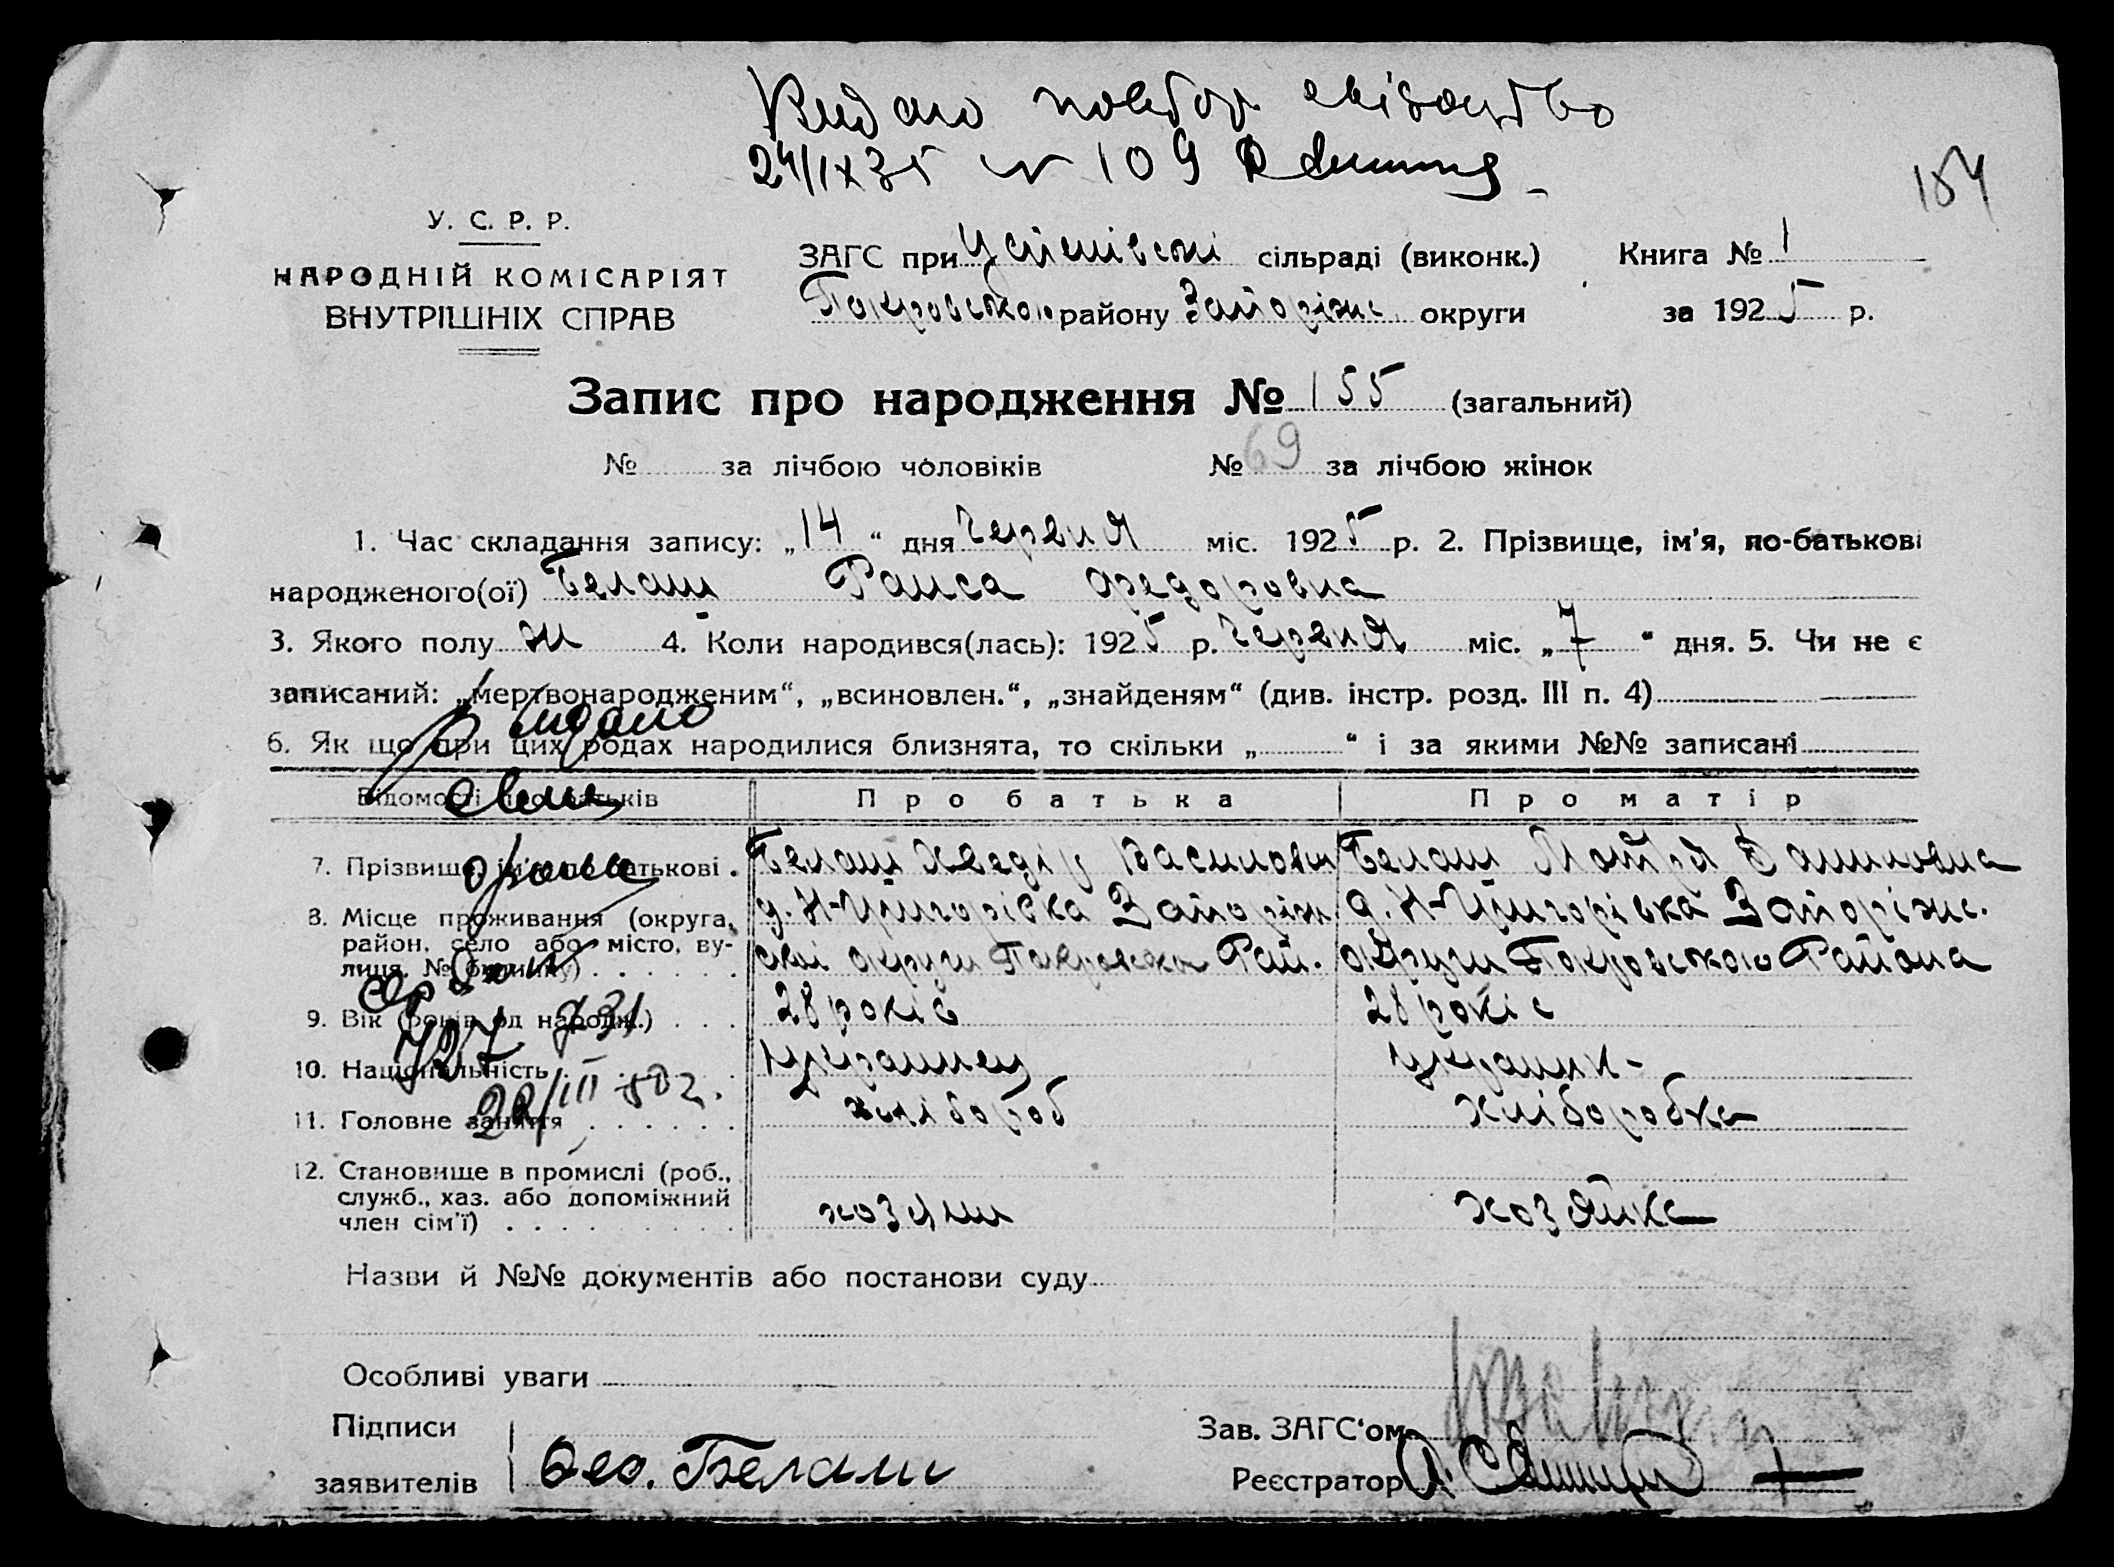 Видано повтор свідоцтво
24/IX 35 № 109
154
У. С. Р. Р.
НАРОДНІЙ КОМІСАРІЯТ
ВНУТРІШНІХ СПРАВ
ЗАГС при Успенівські сільраді (виконк.) Книга № 1
Покровського району Запоріж. округи за 1925 р.
Запис про народження № 155 (загальний)
№ за лічбою чоловіків № 69 за лічбою жінок
1. Час складання запису: „14“ дня Червня міс. 1925 р. 2. Прізвище, ім'я, по-батькові
народженого(ої) Белаш Раиса Федоровна
3. Якого полу ж 4. Коли народився(лась): 1925 р. Червня міс. „7“ дня. 5. Чи не є
записаний: „мертвонародженим“, „всиновлен.“, „знайденям“ (див. інстр. розд. III п. 4)
Видано
6. Як що при цих родах народилися близнята, то скільки „ “ і за якими №№ записані
Відомості про батьків Про батька Про матір
7. Прізвище, ім'я, по-батькові . Белаш Хведір Василови Белаш Мотря
8. Місце проживання (округа, д. Н-Григорівка Запоріж. д. Н-Григорівка Запоріжс.
район, село або місто, ву- скі округи Рай. округи Покровського Района
лиця, № будинку)
9. Вік (років од народж.) . . . 28 років 28 років
10. Національність . Украинец украинк-
22/III
11. Головне заняття . . . . . . хлібороб хліборобка
12. Становище в промислі (роб.,
служб., хаз. або допоміжний хозяин хозяйка
член сім'ї) . . . . . . . . .
Назви й №№ документів або постанови суду
Особливі уваги
Підписи Зав. ЗАГС'ом
заявителів Фео. Белаш Реєстратор